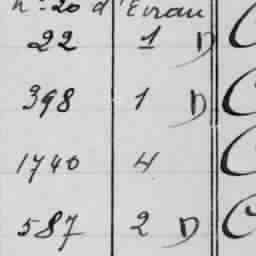 n° 20 d'Ecrou
22 1 D
398 1 D
1740 4
587 2 D